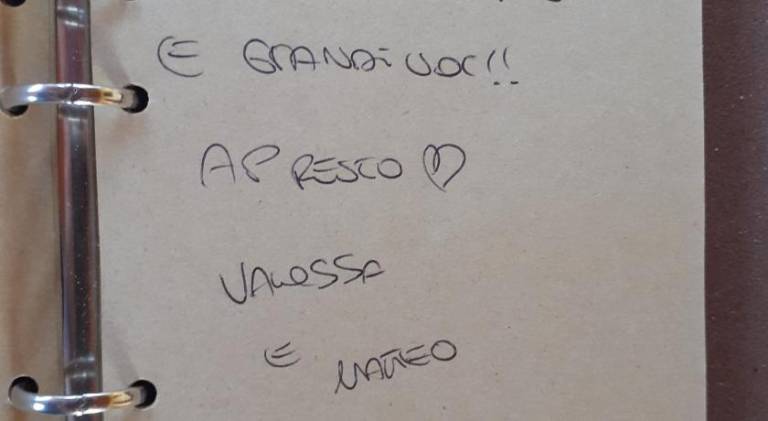 E GRANDi VOi!!
A PRESTO ♡
VANESSA
E MATTEO